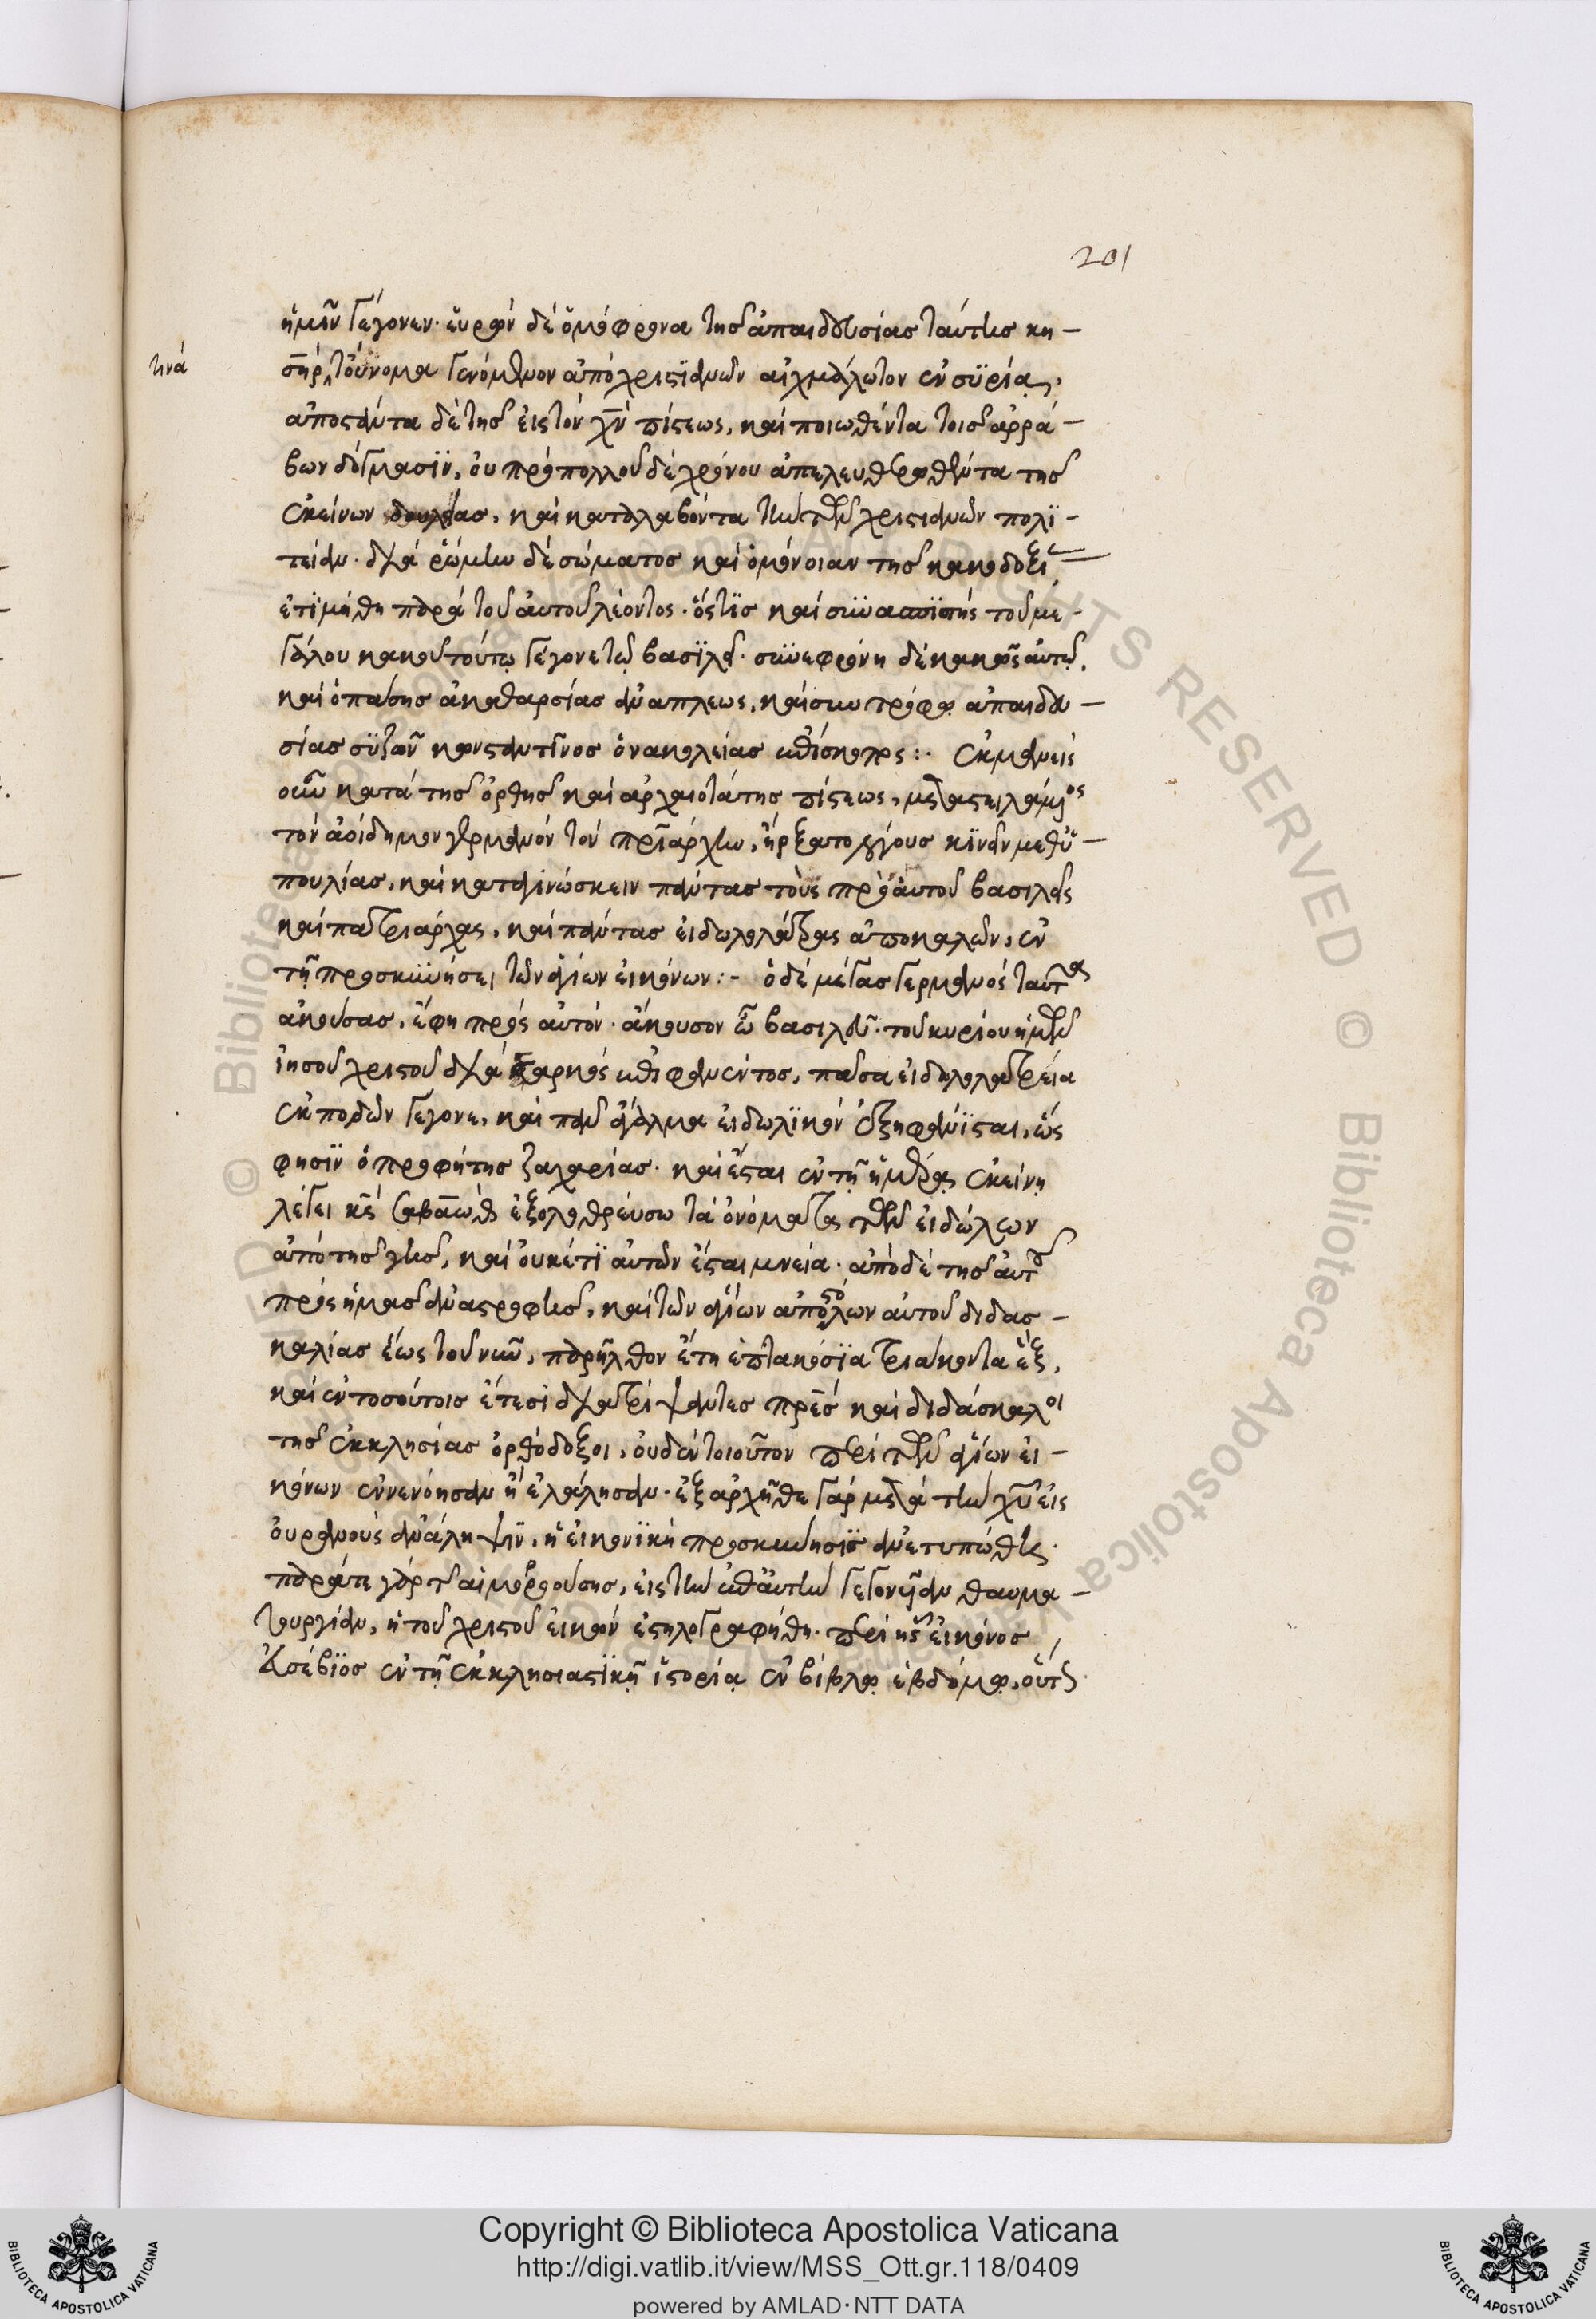 201
ἡμῖν γέγονεν· εὑρὼν δὲ ὁμόφρονα τῆς ἀπαιδευσίας ταύτης βη-
τινά
σὴρ τοὔνομα γενόμενον ἀπὸ χριστϊανῶν αἰχμάλωτον ἐν συρία,
ἀποστάντα δὲ τῆς εἰς τὸν χ̅ν̅ πίστεως, καὶ ποιωθέντα τοῖς ἀρρά-
βων δόγμασϊν, οὐ πρὸ πολλοῦ δὲ χρόνου ἀπελευθερωθέντα τῆς
ἐκείνων δουλείας, καὶ καταλαβόντα τὴν τῶν χριστιανῶν πολϊ-
τείαν· διὰ ῥώμην δὲ σώματος καὶ ὁμόνοιαν τῆς κακοδοξί
ἐτϊμήθη παρὰ τοῦ αὐτοῦ λέοντος· ὅστϊς καὶ συνασπϊστὴς τοῦ με-
γάλου κακοῦ τούτω γέγονε τῶ βασϊλεῖ· συνεφρόνη δὲ κακῶς αὐτῶ,
καὶ ὁ πάσης ἀκαθαρσίας ἀνάπλεως, καὶ συντρόφω ἀπαιδευ-
σίας συζῶν κωνσταντῖνος ὁ νακολείας ἐπίσκοπος:· ἐκμανεὶς
οὖν κατὰ τῆς ὀρθῆς καὶ ἀρχαιοτάτης πίστεως, μεταστειλάμενος
τὸν ἀοίδημον γερμανὸν τὸν πριάρχην, ἤρξατο λόγους κϊνεῖν μεθ' ὑ-
πουλίας, καὶ καταγινώσκειν πάντας τοὺς πρὸ αὐτοῦ βασιλεῖς
καὶ πατριάρχας, καὶ πάντας εἰδωλολάτρας ἀποκαλῶν, ἐν
τῆ προσκυνήσει τῶν ἁγίων εἰκόνων:- ὁ δὲ μέγας γερμανὸς ταῦτα
ἀκούσας, ἔφη πρὸς αὐτόν· ἄκουσον ὦ βασιλεῦ· τοῦ κυρίου ἡμῶν
ἰησοῦ χριστοῦ διὰ σαρκὸς ἐπιφανέντος, πᾶσα εἰδωλολατρεία
ἐκποδῶν γέγονε, καὶ πᾶν ἄγαλμα εἰδωλϊκὸν ἐξηφάνϊσται, ὥς
φησϊν ὁ προφήτης ζαχαρίας· καὶ ἔσται ἐν τῆ ἡμέρα ἐκείνη
λέγει κ̅ς̅ σαβαὼθ ἐξολοθρεύσω τὰ ὀνόματα τῶν εἰδώλων
ἀπὸ τῆς γῆς, καὶ οὐκέτϊ αὐτῶν ἔσται μνεία· ἀπὸ δὲ τῆς αὐτοῦ
πρὸς ἡμᾶς ἀναστροφῆς, καὶ τῶν ἁγίων ἀποστόλων αὐτοῦ διδασ-
καλίας ἕως τοῦ νῦν, παρῆλθον ἔτη ἑπτακόσϊα τριάκοντα ἓξ,
καὶ ἐν τοσούτοις ἔτεσι διατρίψαντες πρε̅ς καὶ διδάσκαλοι
τῆς ἐκκλησίας ὀρθόδοξοι, οὐδὲν τοιοῦτον περὶ τῶν ἁγίων εἰ-
κόνων ἐνενόησαν ἢ ἐλάλησαν· ἐξ ἀρχῆθε γὰρ μετὰ τὴν χ̅υ̅ εἰς
οὐρανοὺς ἀνάληψιν, ἡ εἰκονϊκὴ προσκύνησϊς ἀνετυπώθη·
παρά τε γὰρ τ αἱμορροούσης, εἰς τὴν ἐπ' αὐτὴν γεγονεῖαν θαυμα-
τουργίαν, ἡ τοῦ χριστοῦ εἰκὼν ἐστηλογραφήθη· περὶ ἧς εἰκόνος
εὐσέβϊος ἐν τῆ ἐκκλησιαστϊκῆ ἱστορία ἐν βίβλω ἑβδόμω, οὕτως
Copyright © Biblioteca Apostolica Vaticana
http://digi.vatlib.it/view/MSS_Ott.gr.118/0409
powered by AMLAD·NTT DATA